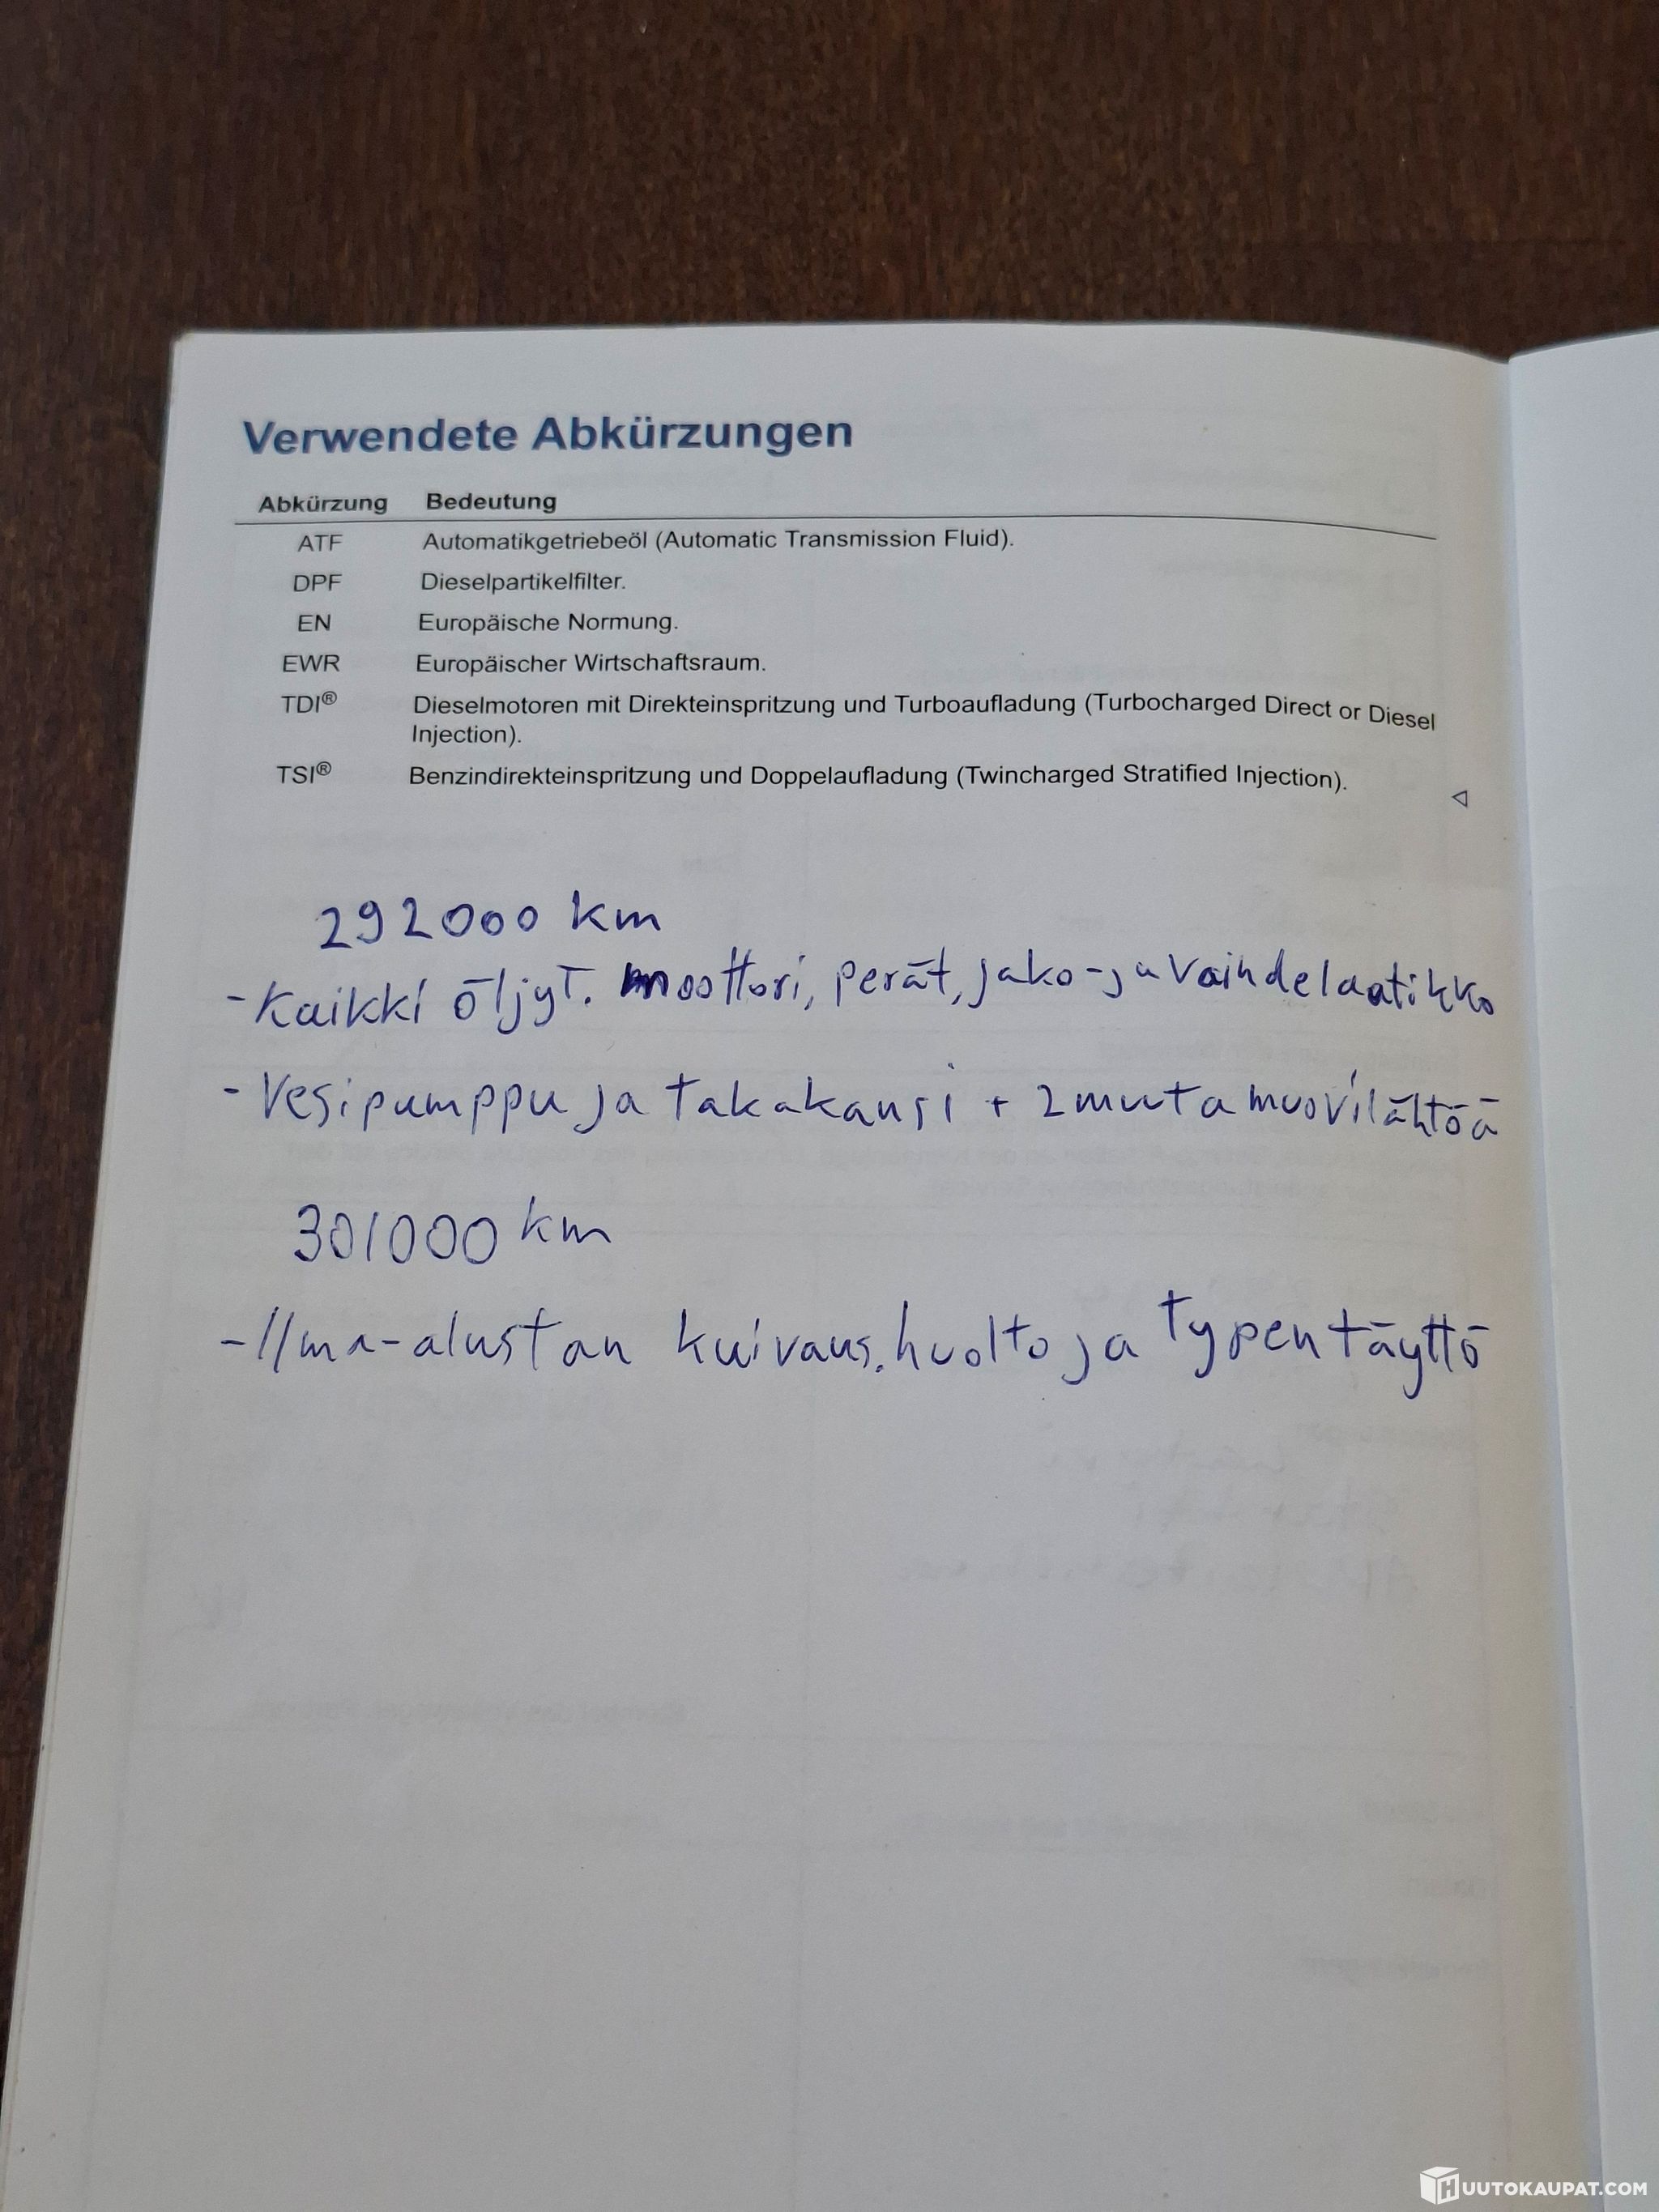 Verwendete Abkürzungen
Abkürzung Bedeutung
ATF Automatikgetriebeöl (Automatic Transmission Fluid).
DPF Dieselpartikelfilter.
EN Europäische Normung.
EWR Europäischer Wirtschaftsraum.
TDI® Dieselmotoren mit Direkteinspritzung und Turboaufladung (Turbocharged Direct or Diesel
Injection).
TSI® Benzindirekteinspritzung und Doppelaufladung (Twincharged Stratified Injection).
292000 km
- Kaikki öljyt. moottori, perät, jako- ja vaihdelaatikko
- Vesipumppu ja takakansi + 2 muuta muovilähtöä
301000 km
- Ilma-alustan kuivaus. huolto ja typen täyttö
HUUTOKAUPAT.COM